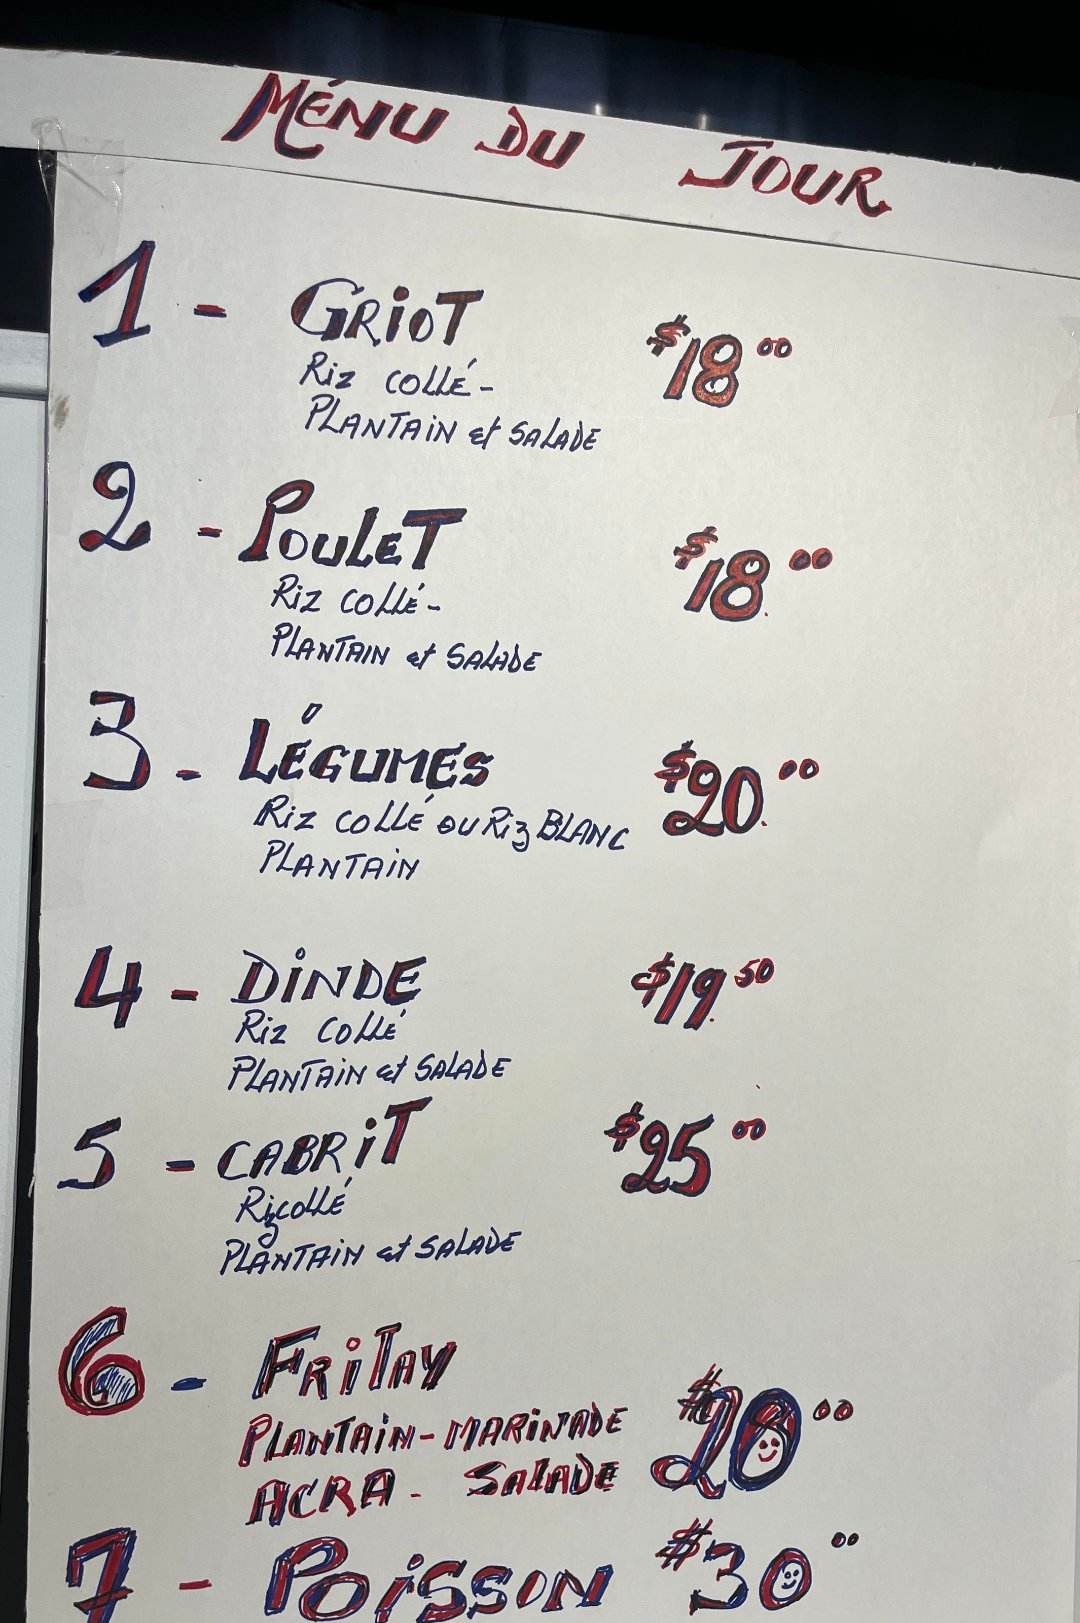 MÉNU DU JOUR
1 - GRIOT $18.00
RIZ COLLÉ -
PLANTAIN et SALADE
2 - POULET $18.00
RIZ COLLÉ -
PLANTAIN et SALADE
3 - LÉGUMES $20.00
RIZ COLLÉ OU RIZ BLANC
PLANTAIN
4 - DINDE $19.50
RIZ COLLÉ
PLANTAIN et SALADE
5 - CABRIT $25.00
RIZ COLLÉ
PLANTAIN et SALADE
6 - FRITAY $20.00
PLANTAIN - MARINADE
ACRA - SALADE
7 - POISSON $30.00